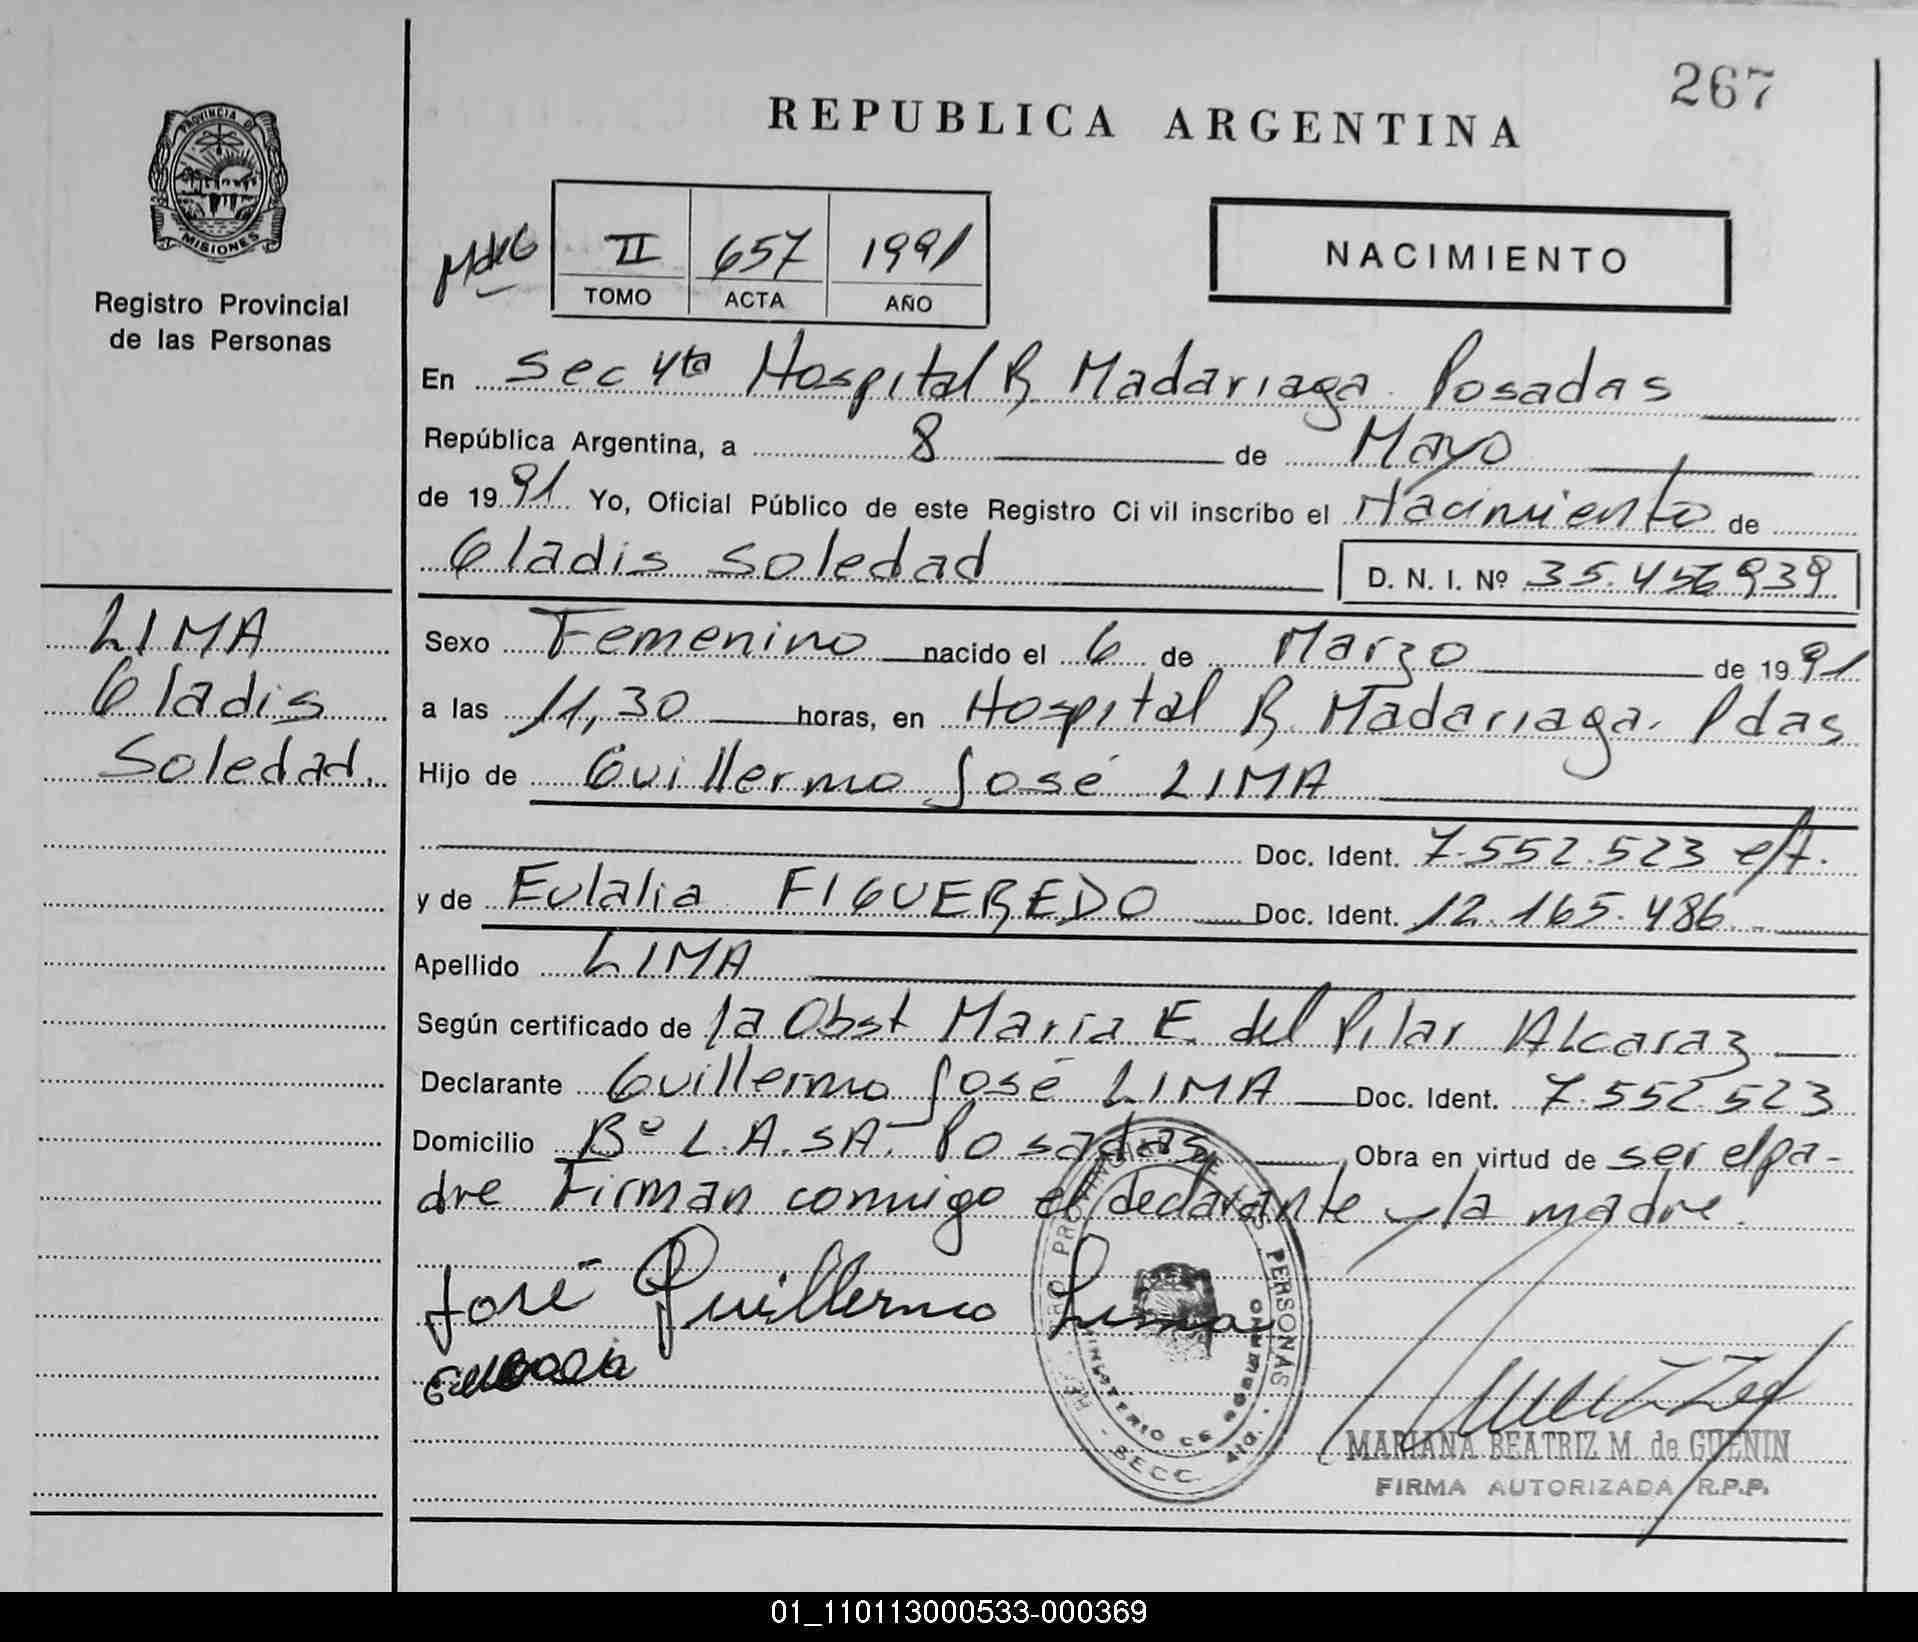 267
REPUBLICA ARGENTINA
PROVINCIA DE
MISIONES
Registro Provincial
de las Personas
II 657 1991
TOMO ACTA AÑO
NACIMIENTO
En Sec 4ta Hospital R. Madariaga. Posadas
República Argentina, a 8 de Mayo
de 1991 Yo, Oficial Público de este Registro Civil inscribo el Nacimiento de
Gladis Soledad D. N. I. Nº 35.456939
LIMA
Gladis
Soledad.
Sexo Femenino nacido el 6 de Marzo de 1991
a las 11,30 horas, en Hospital R. Madariaga. Pdas
Hijo de Guillermo José LIMA
Doc. Ident. 7.552.523 e/t.
y de Eulalia FIGUEREDO Doc. Ident. 12.165.486.
Apellido LIMA
Según certificado de la Obst María E. del Pilar Alcaraz
Declarante Guillermo José LIMA Doc. Ident. 7.552.523
Domicilio Bº L.A.SA. Posadas Obra en virtud de ser el pa-
dre Firman conmigo el declarante y la madre.
José Guillermo Lima
MARIANA BEATRIZ M. de GUENIN
FIRMA AUTORIZADA R.P.P.
01_110113000533-000369